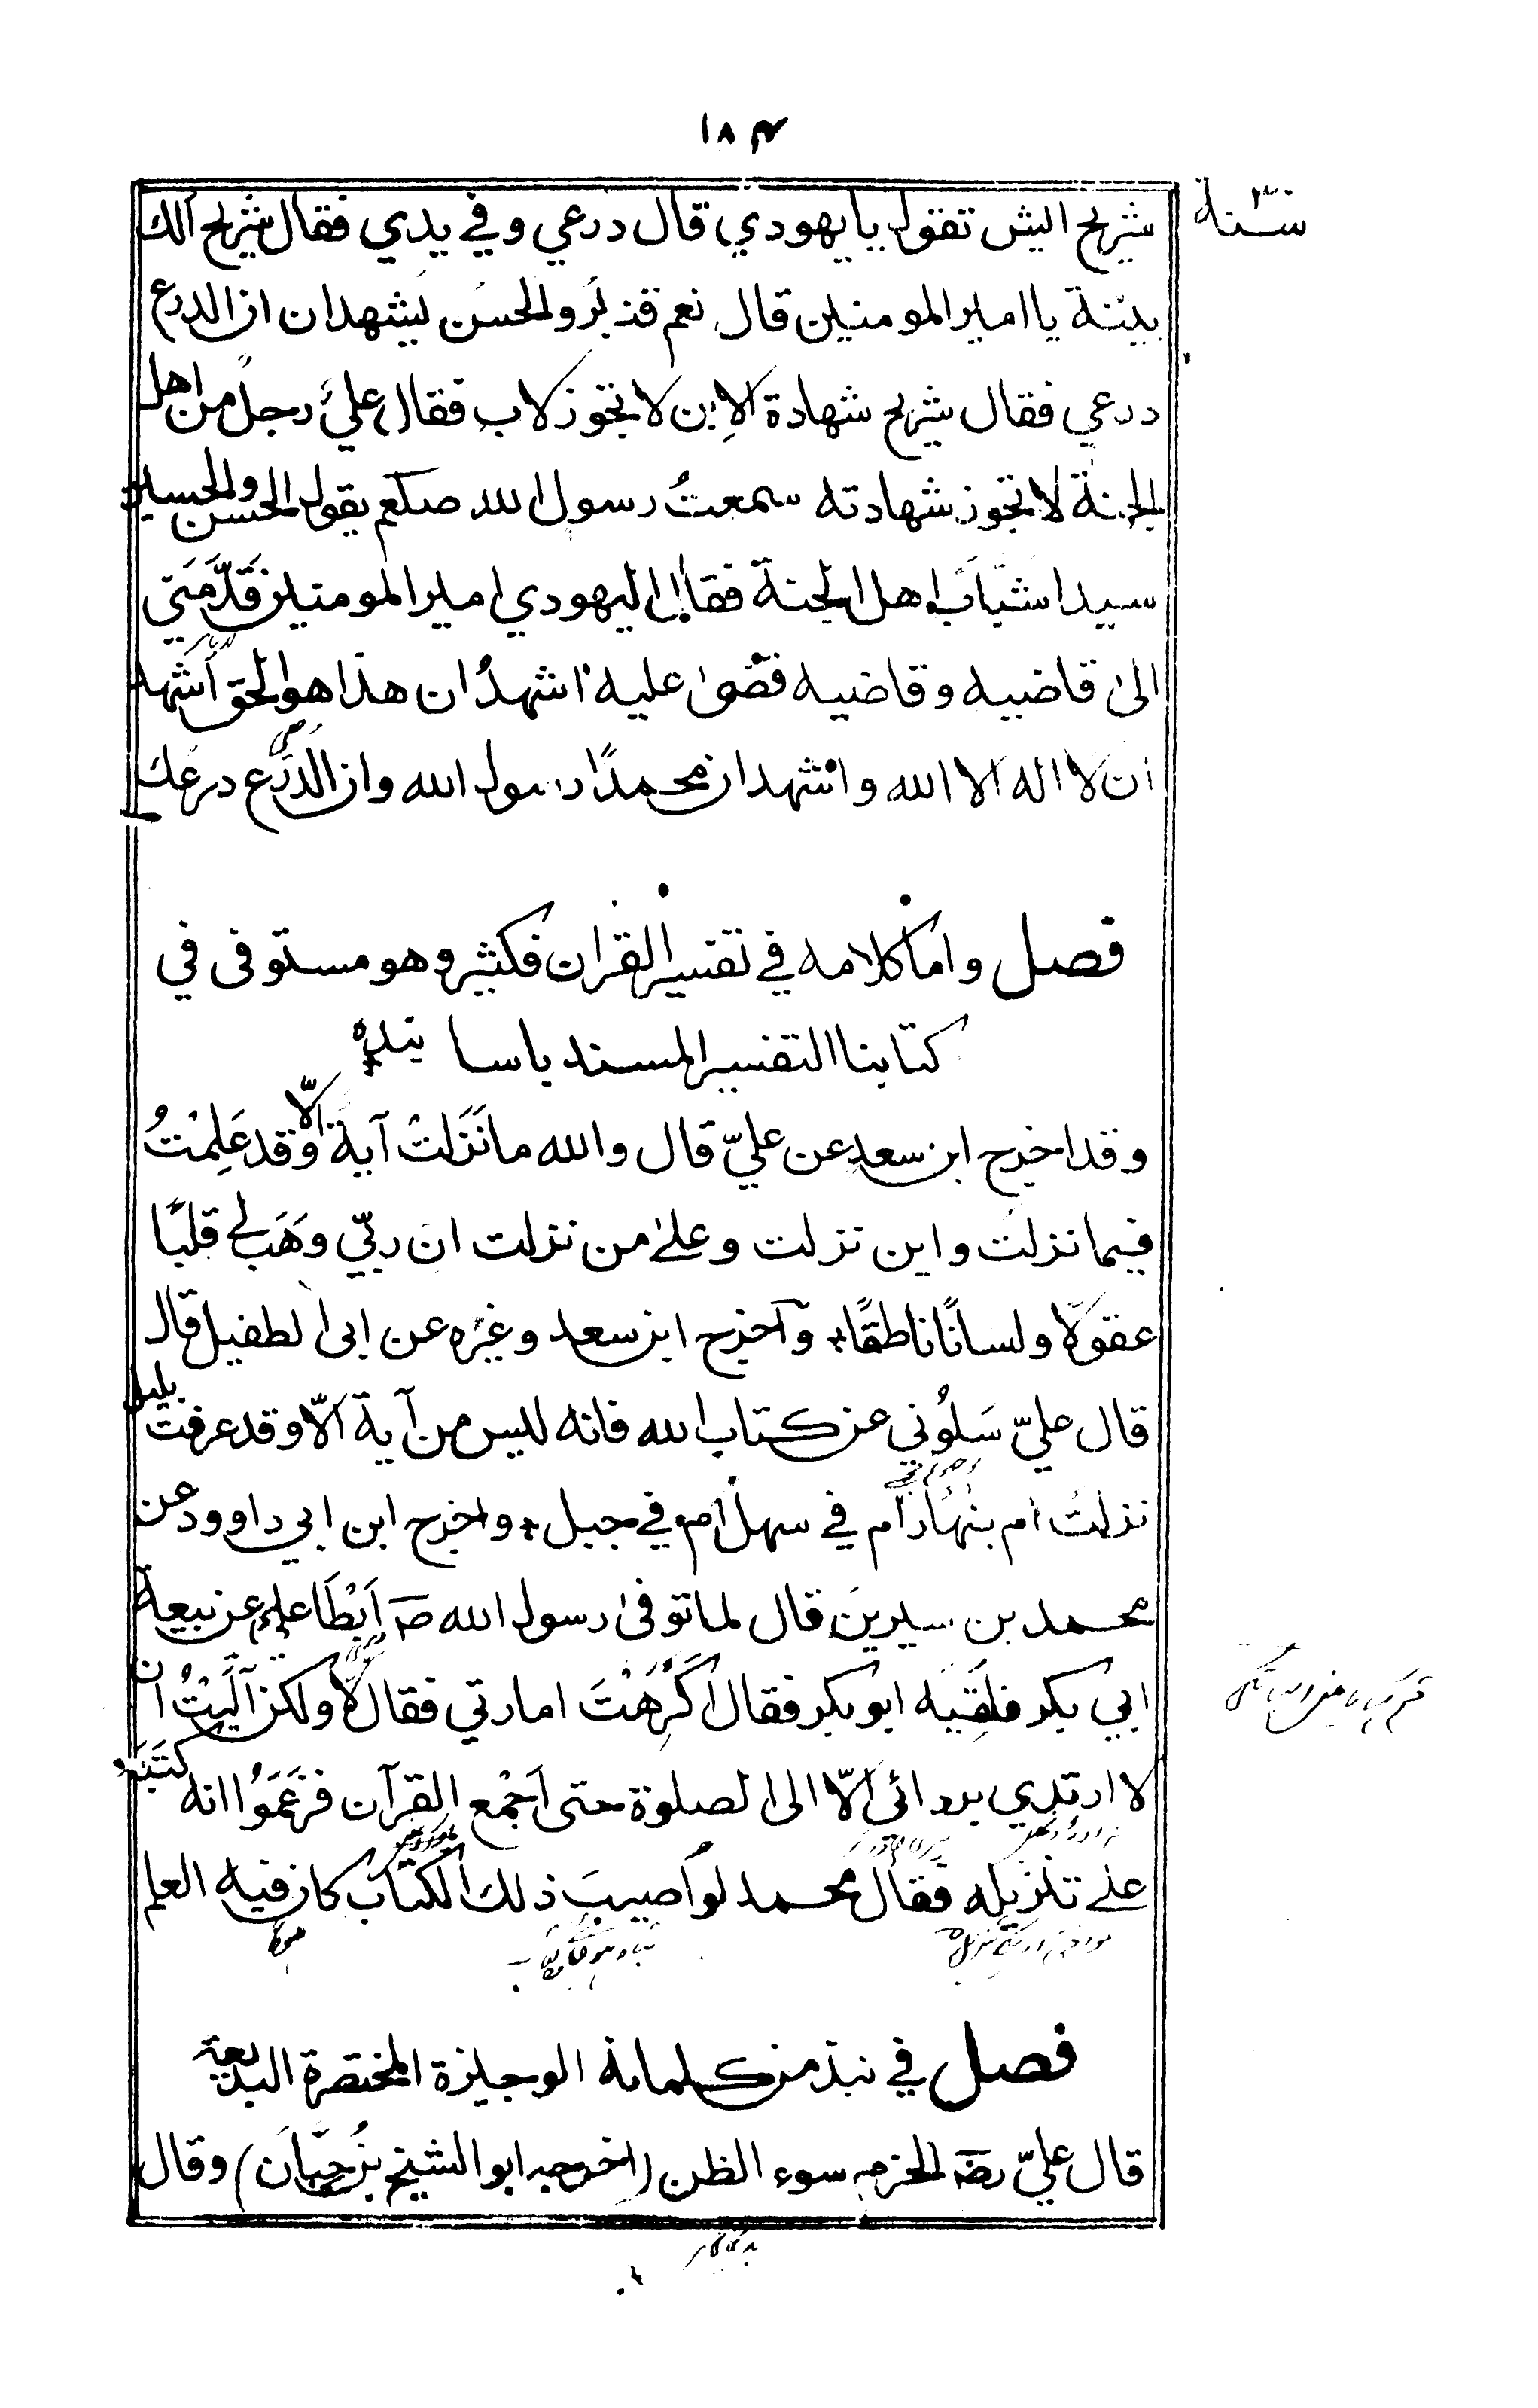 ١٨٤
سنة
شريح ايش تقول يا يهودي قال درعي وفي يدي فقال شريح الك
بينة يا امير المومنين قال نعم قنبر والحسن يشهدان ان الدرع
درعي فقال شريح شهادة الابن لا تجوز للاب فقال عليّ رجل من اهل
الجنة لا تجوز شهادته سمعتُ رسول الله صلعم يقول الحسن والحسين
سيدا شباب اهل الجنة فقال اليهودي امير المومنين قَدَّمَني
الى قاضيه وقاضيه قضى عليه اشهدُ ان هذا هو الحق اَشهد
ان لا اله الا الله واشهد ان محمدًا رسول الله وان الدرع درعك
فصل واما كلامه في تفسير القران فكثير وهو مستوفى في
كتابنا التفسير المسند باسانيده
وقد اخرج ابن سعد عن عليّ قال والله ما نَزَلَتْ آية اِلّا وقد عَلِمْتُ
فيما نزلت واين نزلت وعلىٰ من نزلت ان ربّي وَهَب لي قلبًا
عقولا ولسانًا ناطقًا٭ وَآخرج ابن سعد وغيره عن ابى الطفيل قال
قال عليّ سَلُوني عن كتاب الله فانه ليس من آية الّا وقد عرفت بليل
نزلت ام بنهار اَم في سهل اَم في جبل٭ واخرج ابن ابي داوود عن
محمد بن سيرينَ قال لما توفى رسول الله صـ اَبْطَأ علي عن بيعة
ابي بكر فلقِيَه ابو بكر فقال اَكَرِهْتَ امارتي فقال لا ولكن آلَيْتُ ان
لا ارتدي بردائى الّا الى الصلوة حتى اَجْمع القرآن فزَعَمُوا انه كتَبَه
على تنزيله فقال محمد لو اُصيبَ ذلك الكتاب كان فيه العلم
فصل في نبذ من كلماته الوجيزة المختصرة البديعة
قال عليّ رضـ الحزم سوء الظن (اخرجه ابو الشيخ بن حِبّان) وقال